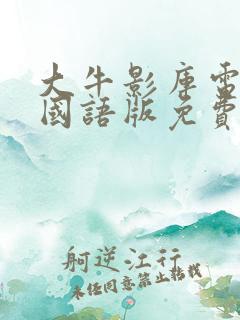 大牛影库雷
國語版免費
舸逆江行
未经同意禁止转载